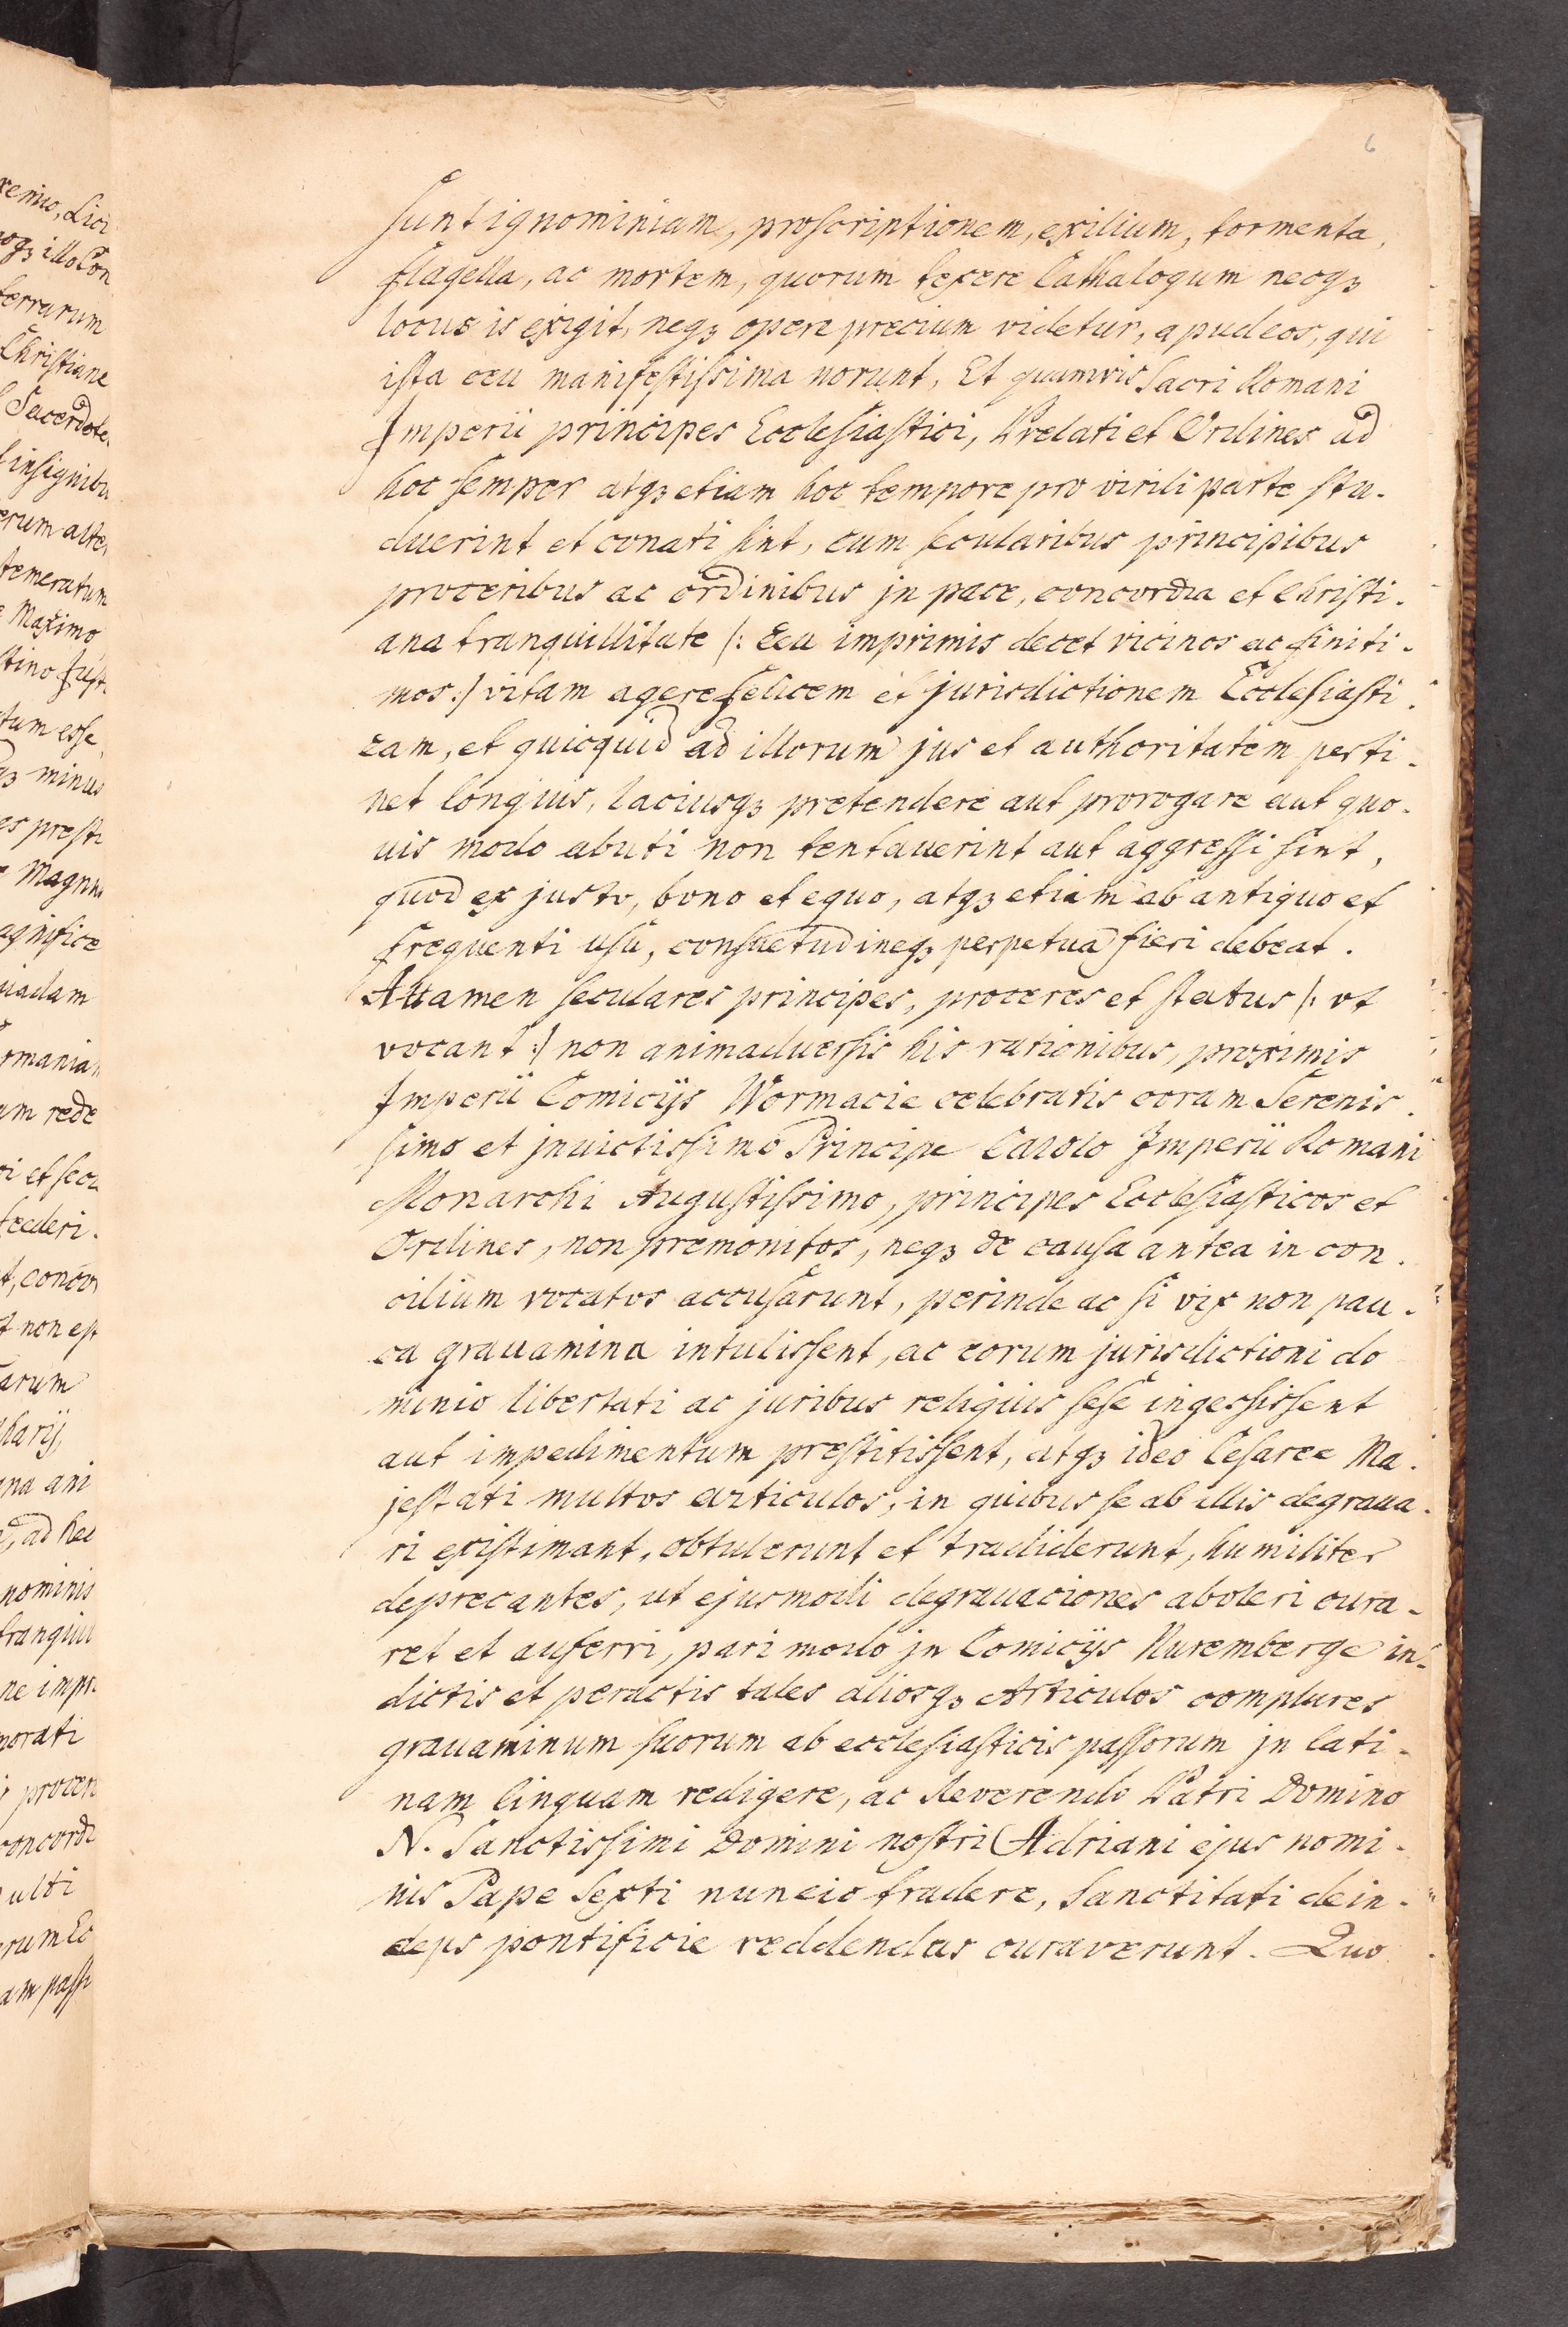 6
sunt ignominiam, proscriptionem, exilium, tormenta,
flagella, ac mortem, quorum texere Cathalogum necqꝫ
locus is exigit, neqꝫ opere precium videtur, apud eos, qui
ista ceu manifestissima norunt, Et quamvis Sacri Romani
Imperii principes Ecclesiastici, Prelati et Ordines ad
hoc semper atqꝫ etiam hoc tempore pro virili parte stu-
duerint et conati sint, cum secularibus principibus
proceribus ac ordinibus jn pace, concordia et Christi-
ana tranquillitate /: Ceu imprimis decet vicinos ac finiti-
mos :/ vitam agere felicem et jurisdictionem Ecclesiasti-
cam, et quicquid ad illorum jus et authoritatem perti-
net longius, laciusqꝫ pretendere aut prorogare aut quo-
uis modo abuti non tentauerint aut aggressi sint,
quod ex justo, bono et equo, atqꝫ etiam ab antiquo et
frequenti usu, consuetudineqꝫ perpetua fieri debeat.
Attamen seculares principes, proceres et status /: vt
vocant :/ non animaduersis his rationibus, proximis
Imperii Comicijs Wormacie celebratis coram Serenis-
simo et jnuictissimo Principe Carolo Imperii Romani
Monarchi Augustissimo, principes Ecclesiasticos et
Ordines, non premonitos, neqꝫ de causa antea in con-
cilium vocatos accusarunt, perinde ac si vix non pau-
ca grauamina intulissent, ac eorum jurisdictioni do
minio libertati ac juribus reliquis sese ingessissent
aut impedimentum prestitissent, atqꝫ ideo Cesaree Ma-
jestati multos articulos, in quibus se ab illis degraua-
ri existimant, obtulerunt et tradiderunt, humiliter
deprecantes, ut ejusmodi degrauaciones aboleri cura-
ret et auferri, pari modo jn Comicijs Nuremberge in-
dictis et peractis tales aliosqꝫ Articulos complures
grauaminum suorum ab ecclesiasticis passorum jn lati-
nam linguam redigere, ac Reverendo Patri Domino
N. Sanctissimi Domini nostri Adriani ejus nomi-
nis Pape Sexti nuncio tradere, Sanctitati dein-
deps pontificie reddendas curaverunt. Quo